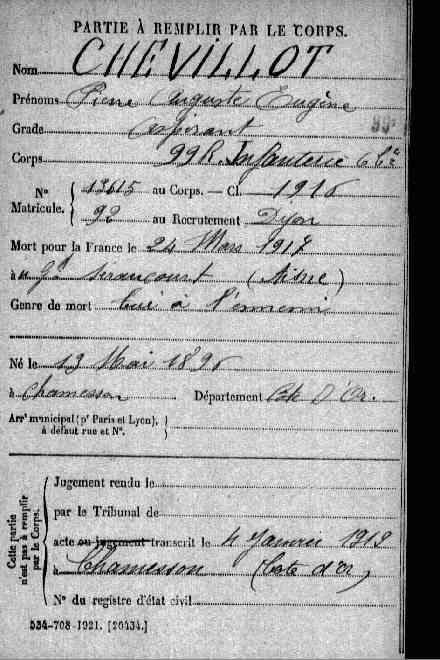 PARTIE À REMPLIR PAR LE CORPS.
Nom CHEVILLOT
Prénoms Pierre Auguste Eugène
Grade aspirant
Corps 99 R. Infanterie
N° Matricule. 13615 au Corps. — Cl. 1916
92 au Recrutement Dijon
Mort pour la France le 24 Mars 1917
à Gd Seraucourt (Aisne)
Genre de mort tué à l'ennemi
Né le 13 Mai 1896
à Chamesson Département Côte D'Or.
Arrt municipal (pr Paris et Lyon),
à défaut rue et N°.
Cette partie n'est pas à remplir par le Corps.
Jugement rendu le
par le Tribunal de
acte ou jugement transcrit le 4 Janvier 1919
à Chamesson (Côte d'Or)
N° du registre d'état civil
534-708-1921. [20434.]